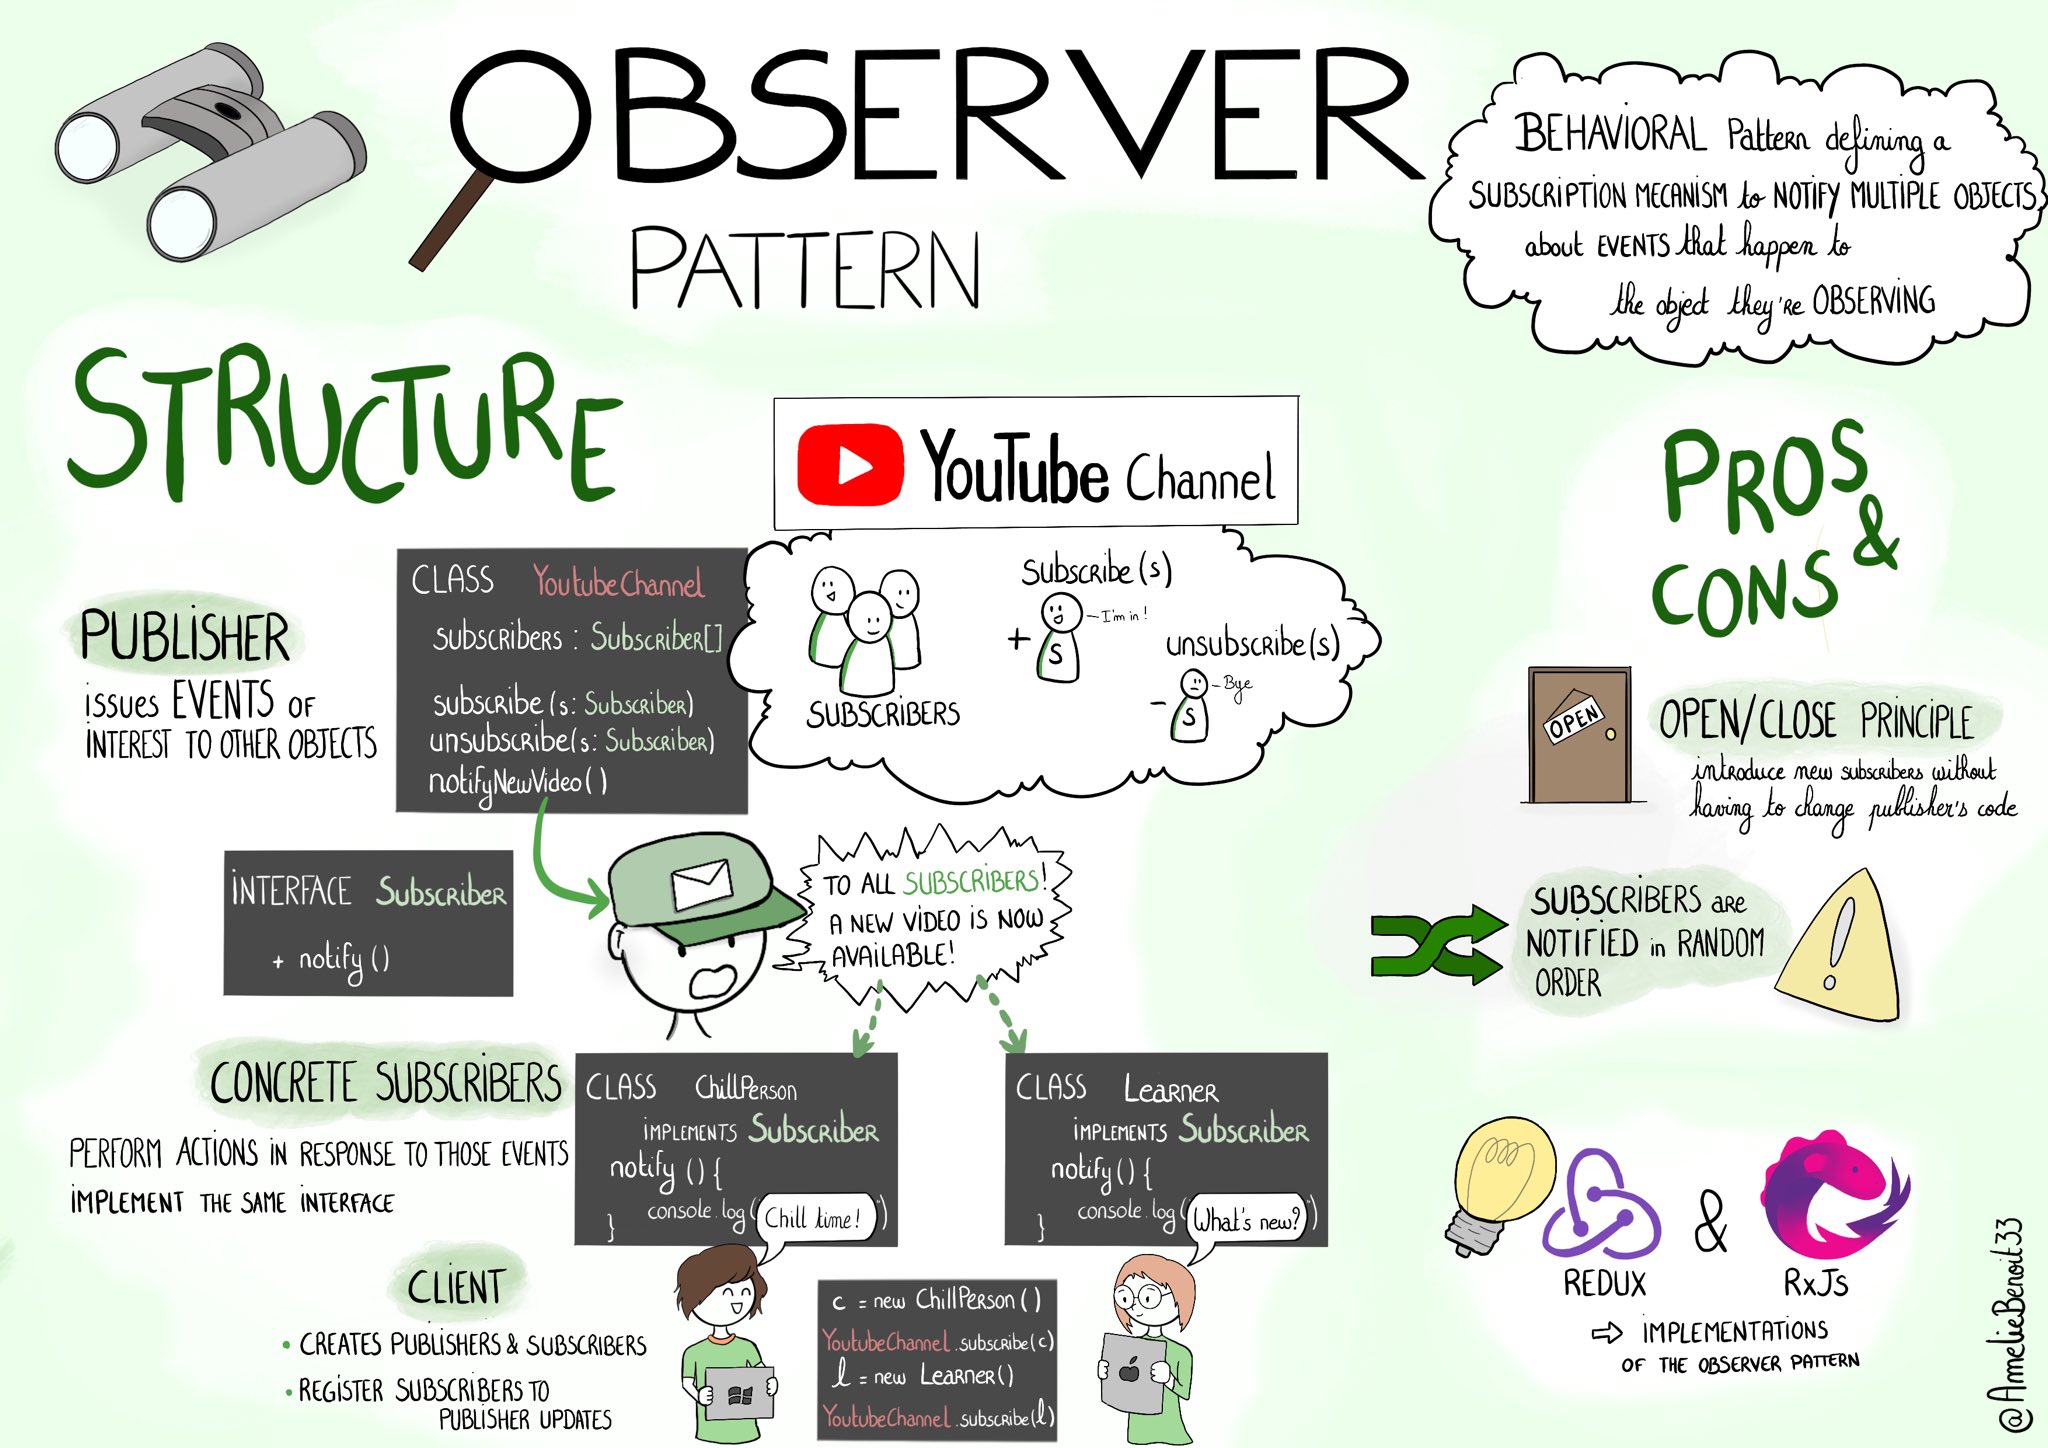 OBSERVER
PATTERN
BEHAVIORAL Pattern defining a
SUBSCRIPTION MECANISM to NOTIFY MULTIPLE OBJECTS
about EVENTS that happen to
the object they're OBSERVING
STRUCTURE
YouTube Channel
PUBLISHER
issues EVENTS OF
INTEREST TO OTHER OBJECTS
CLASS YoutubeChannel
SUBSCRIBERS : Subscriber[]
subscribe (s: Subscriber)
unsubscribe(s: Subscriber)
notifyNewVideo()
SUBSCRIBERS
Subscribe(s)
+
- I'm in !
S
unsubscribe(s)
-
- Bye
S
INTERFACE Subscriber
+ notify()
TO ALL SUBSCRIBERS!
A NEW VIDEO IS NOW
AVAILABLE!
CONCRETE SUBSCRIBERS
PERFORM ACTIONS IN RESPONSE TO THOSE EVENTS
IMPLEMENT THE SAME INTERFACE
CLASS ChillPerson
IMPLEMENTS Subscriber
notify () {
console.log("Chill time!")
}
CLASS Learner
IMPLEMENTS Subscriber
notify() {
console.log("What's new?")
}
CLIENT
• CREATES PUBLISHERS & SUBSCRIBERS
• REGISTER SUBSCRIBERS TO
PUBLISHER UPDATES
c = new ChillPerson()
YoutubeChannel.subscribe(c)
l = new Learner()
YoutubeChannel.subscribe(l)
PROS
&
CONS
OPEN
OPEN/CLOSE PRINCIPLE
introduce new subscribers without
having to change publisher's code
SUBSCRIBERS are
NOTIFIED in RANDOM
ORDER
!
REDUX
&
RxJs
⇨ IMPLEMENTATIONS
OF THE OBSERVER PATTERN
@AmelieBenoit33